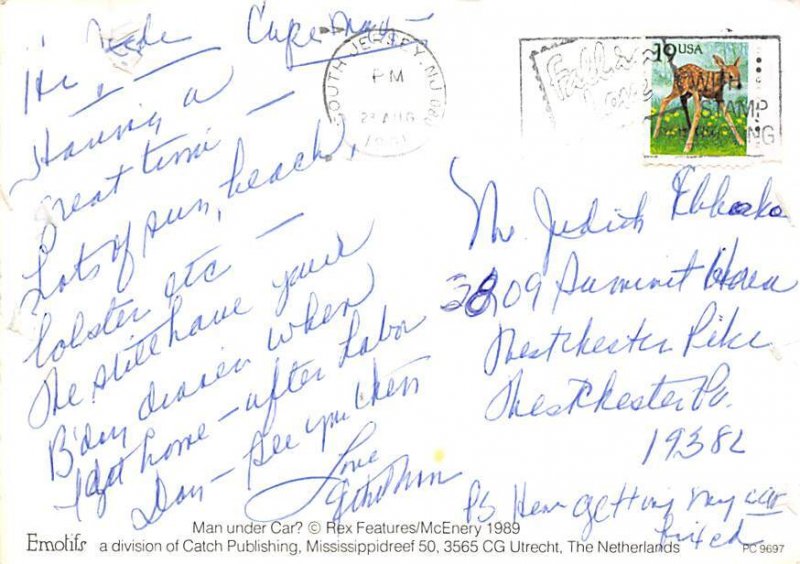 Hi Jude Cape May
Having a
Great time —
Lots of sun, beach,
lobster etc —
We still have your
B'day dinner when
I get home — after Labor
Day — See you then
Love
PS Here getting my car
fixed
SOUTH JERSEY, NJ 080
PM
23 AUG
19 USA
WITH
STAMP
Ms. Judith
3809 Summit
Westchester Pike
WestChester Pa.
19382
Man under Car? © Rex Features/McEnery 1989
Emotifs a division of Catch Publishing, Mississippidreef 50, 3565 CG Utrecht, The Netherlands PC 9697